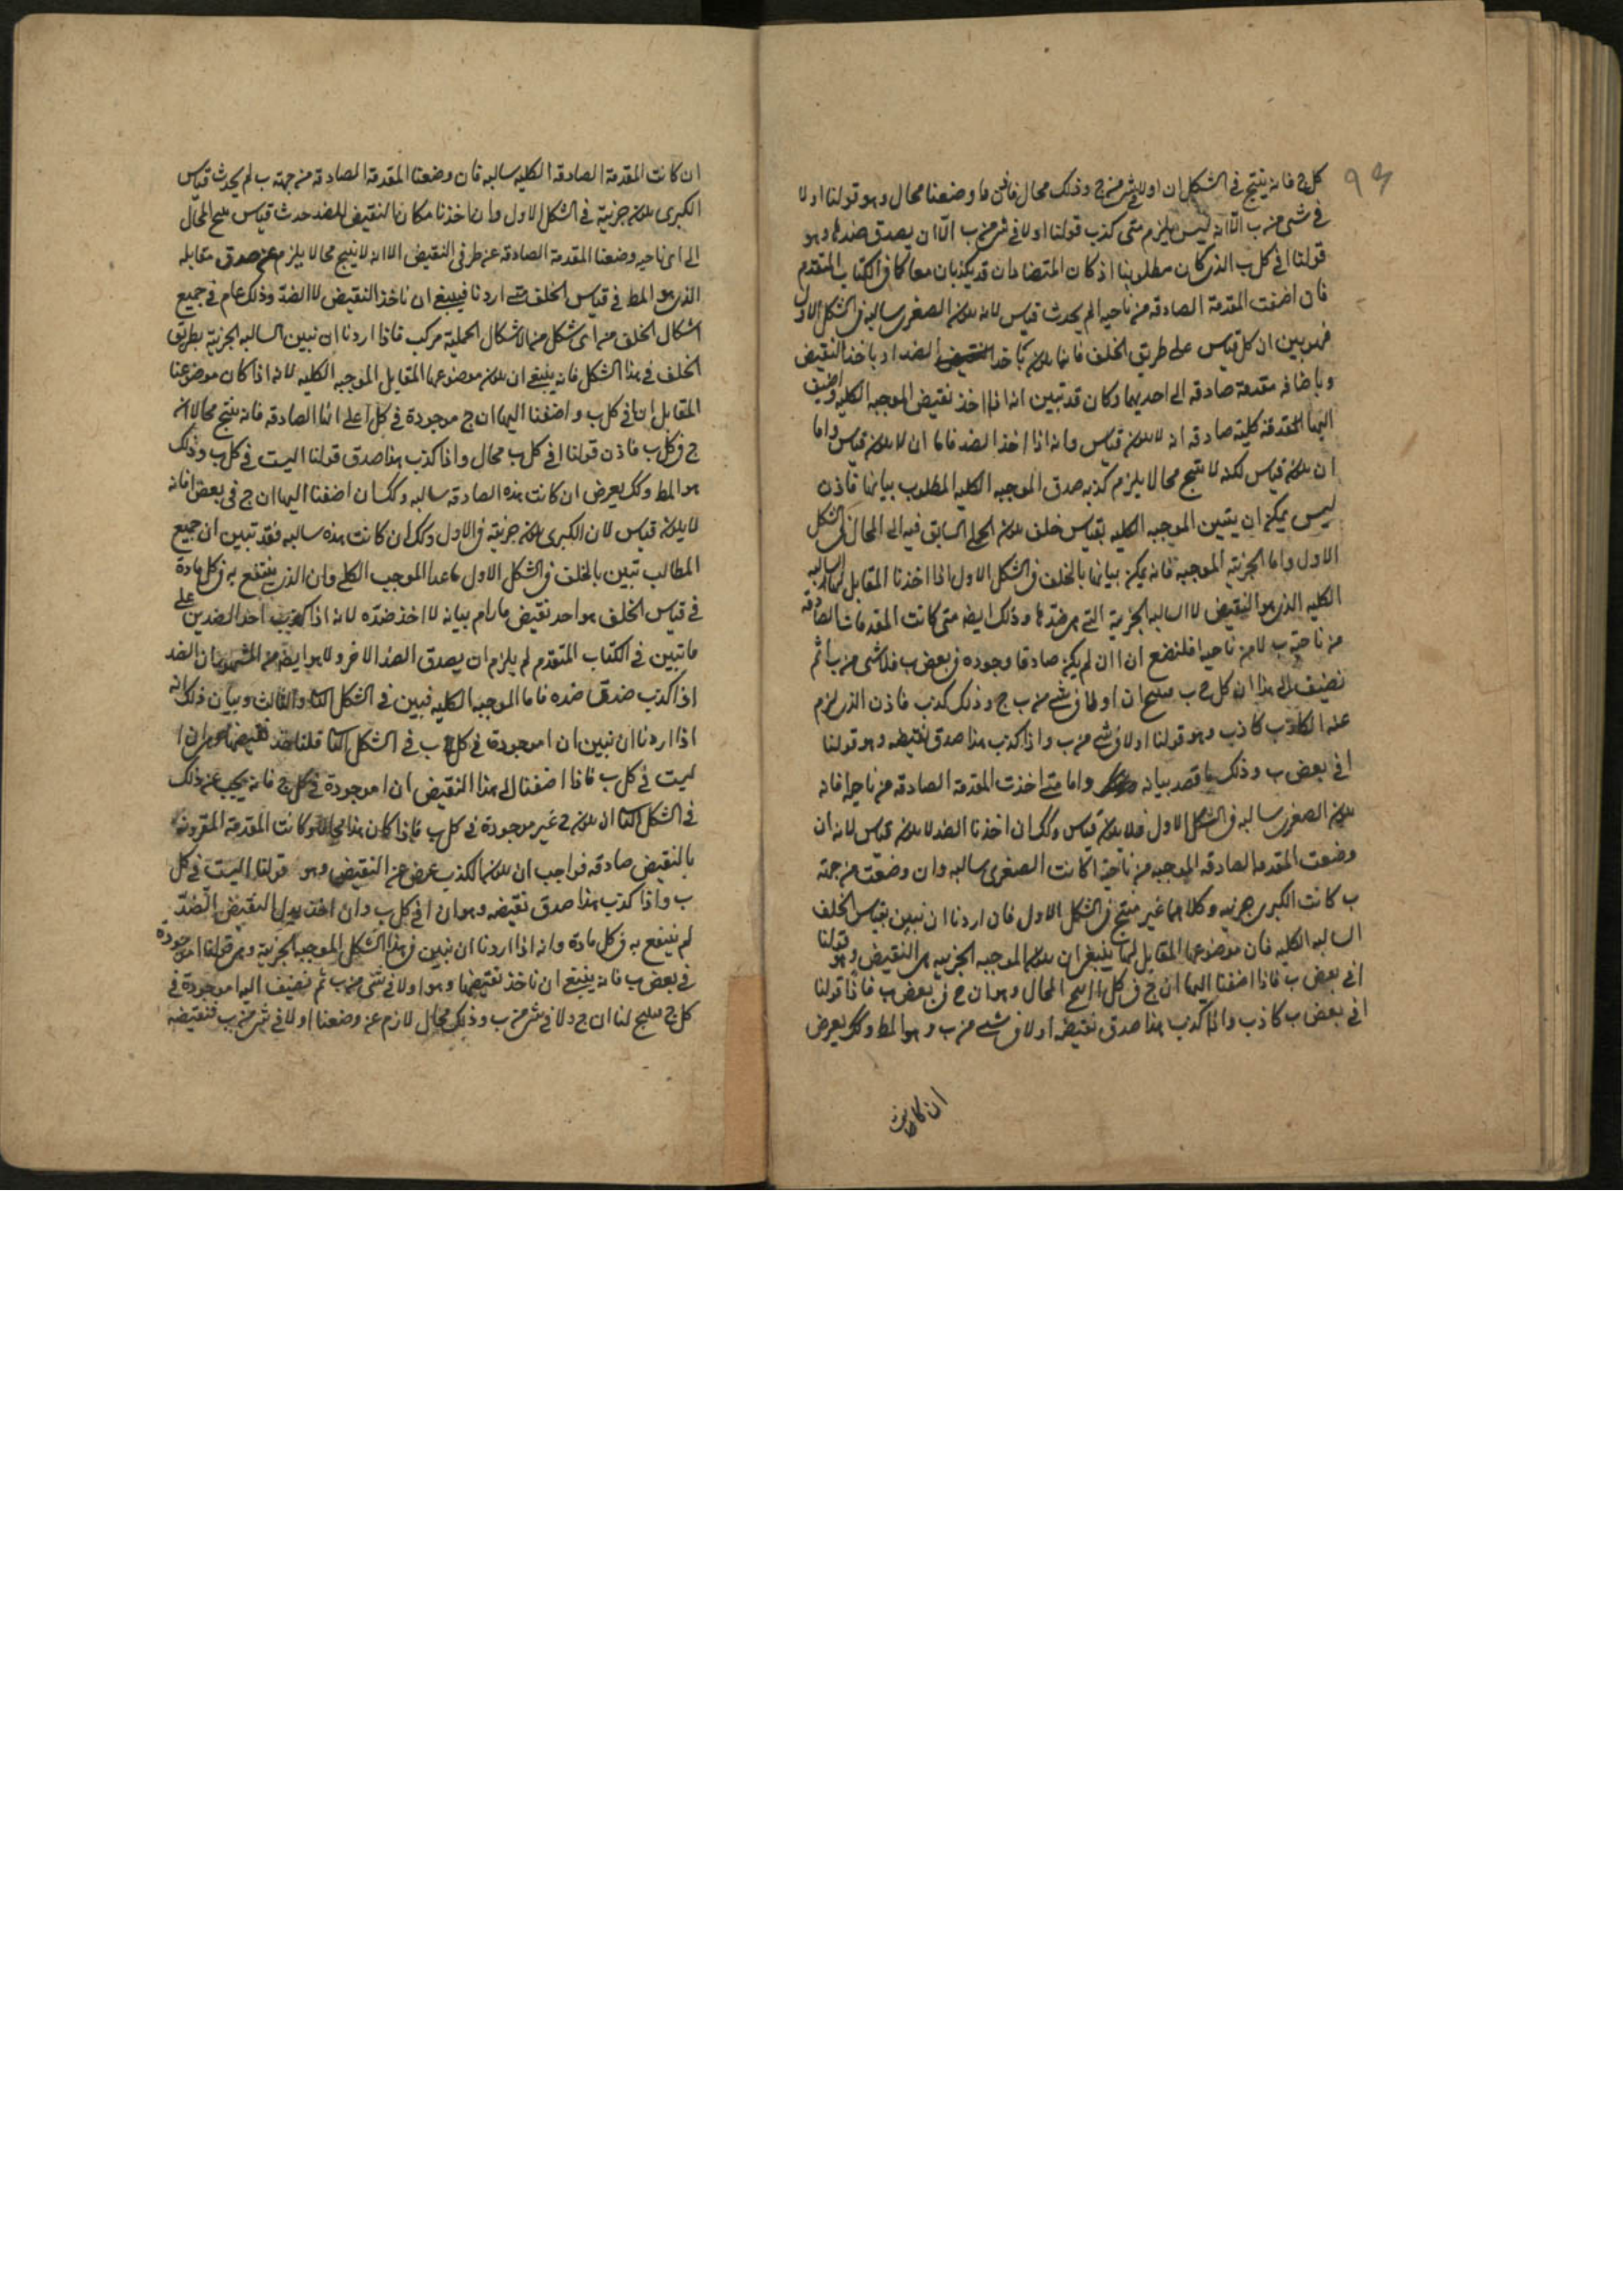 ٩٤
كل ج فانه ينتج في الشكل ان ا ولا في شي من ج وذلك محال فاذن ما وضعنا محال وهو قولنا ا ولا
في شي من ب الا انه ليس يلزم متى كذب قولنا ا ولا في شي من ب الا ان يصدق ضدها وهو
قولنا ا في كل ب الذي كان مطلوبنا اذ كان المتضادان قد يكذبان معا كما في الكتاب المتقدم
فان اضفت المقدمة الصادقه من ناحيه ا لم يحدث قياس لانه يكون الصغرى سالبه في الشكل الاول
فهو بين ان كل قياس على طريق الخلف فانما يكون باخذ الضد او باخذ النقيض
وباضافه مقدمة صادقه الى احديهما وكان قد تبين انه اذا اخذ نقيض الموجبه الكليه واضيف
اليها المقدمة كلية صادقه انه لا يكون قياس وانه اذا اخذ الضد فاما ان لا يكون قياس واما
ان يكون قياس لكنه لا ينتج محالا يلزم كذبه صدق الموجبه الكليه المطلوب بيانها فاذن
ليس يمكن ان يتبين الموجبه الكليه بقياس خلف يكون الحملي السابق فيه الى المحال في الشكل
الاول واما الجزئية الموجبه فانه يمكن بيانها بالخلف في الشكل الاول اذا اخذنا المقابل لها السالبه
الكليه الذي هو النقيض لا السالبه الجزئية التي هي ضدها وذلك ايضا متى كانت المقدمات الصادقه
من ناحية ب لا من ناحيه ا فلنضع ان ا ان لم يكن صادقا وجوده في بعض ب فلا شي من ب ا ثم
نضيف الى هذا ان كل ج ب فينتج ان ا ولا في شي من ج وذلك كذب فاذن الذي لزم
عنه الكاذب كاذب وهو قولنا ا ولا في شي من ب واذا كذب هذا صدق نقيضه وهو قولنا
ا في بعض ب وذلك ما قصد بيانه واما متى اخذت المقدمة الصادقه من ناحيه ا فانه
يكون الصغرى سالبه في الشكل الاول فلا يكون قياس وكك ان اخذنا الضد لا يكون قياس لانه ان
وضعت المقدمه الصادقه الموجبه من ناحية ا كانت الصغرى سالبه وان وضعت من جهة
ب كانت الكبرى جزئيه وكلاهما غير منتج في الشكل الاول فان اردنا ان نبين بقياس الخلف
السالبه الكليه فان موضوعها المقابل لها ينبغي ان يكون الموجبه الجزئيه هي النقيض وهو قولنا
ا في بعض ب فاذا اضفنا اليها ان ج في كل ا انتج المحال وهو ان ج في بعض ب فاذا قولنا
ا في بعض ب كاذب واذا كذب هذا صدق نقيضه ا ولا في شي من ب وهو المط وكك يعرض
ان كانت
ان كانت المقدمة الصادقه الكليه سالبه فان وضعنا المقدمة الصادقه من جهة ب لم يحدث قياس
الكبرى يكون جزئية في الشكل الاول وان اخذنا مكان النقيض الضد حدث قياس ينتج المحال
الى اى ناحيه وضعنا المقدمة الصادقه عن طرفي النقيض الا انه لا ينتج محالا يلزم عنه صدق مقابله
الذي هو المط في قياس الخلف متى اردنا فينبغي ان ناخذ النقيض لا الضد وذلك عام في جميع
اشكال الخلف من اى شكل من الاشكال الحملية مركب فاذا اردنا ان نبين السالبه الجزئية بطريق
الخلف في هذا الشكل فانه ينبغي ان يكون موضوعها المقابل الموجبه الكليه لانه اذا كان موضوعنا
المقابل ان ا في كل ب واضفنا اليها ان ج موجودة في كل ا على انها الصادقه فانه ينتج محالا ان
ج في كل ب فاذن قولنا ا في كل ب محال واذا كذب هذا صدق قولنا ا ليست في كل ب وذلك
هو المط وكك يعرض ان كانت هذه الصادقه سالبه وكك ان اضفنا اليها ان ج في بعض ا فانه
لا يكون قياس لان الكبرى يكون جزئية في الاول وكك ان كانت هذه سالبه فقد تبين ان جميع
المطالب تبين بالخلف في الشكل الاول ما عدا الموجب الكلي وان الذي ينتفع به في كل مادة
في قياس الخلف هو اخذ نقيض ما رام بيانه لا اخذ ضده لانه اذا كذب احد الضدين على
ما تبين في الكتاب المتقدم لم يلزم ان يصدق الضد الاخر ولا هو ايضا من المشهور ان الضد
اذا كذب صدق ضده فاما الموجبه الكليه فتبين في الشكل الثاني والثالث وبيان ذلك انه
اذا اردنا ان نبين ان ا موجودة في كل ب في الشكل الثاني قلنا ناخذ نقيضها وهو ان ا
ليست في كل ب فاذا اضفنا الى هذا النقيض ان ا موجودة في كل ج فانه يجب عن ذلك
في الشكل الثاني ان يكون ج غير موجودة في كل ب فاذا كان هذا محالا وكانت المقدمة المقرونه
بالنقيض صادقه فواجب ان يكون الكذب عرض من النقيض وهو قولنا ا ليست في كل
ب واذا كذب هذا صدق نقيضه وهو ان ا في كل ب وان اخذ بدل النقيض الضد
لم ينتفع به في كل مادة وانه اذا اردنا ان نبين في هذا الشكل الموجبه الجزئية وهي قولنا ا موجودة
في بعض ب فانه ينبغي ان ناخذ نقيضها وهو ا ولا في شي من ب ثم نضيف اليها ا موجودة في
كل ج فينتج لنا ان ج ولا في شي من ب وذلك محال لازم عن وضعنا ا ولا في شي من ب فنقيضه